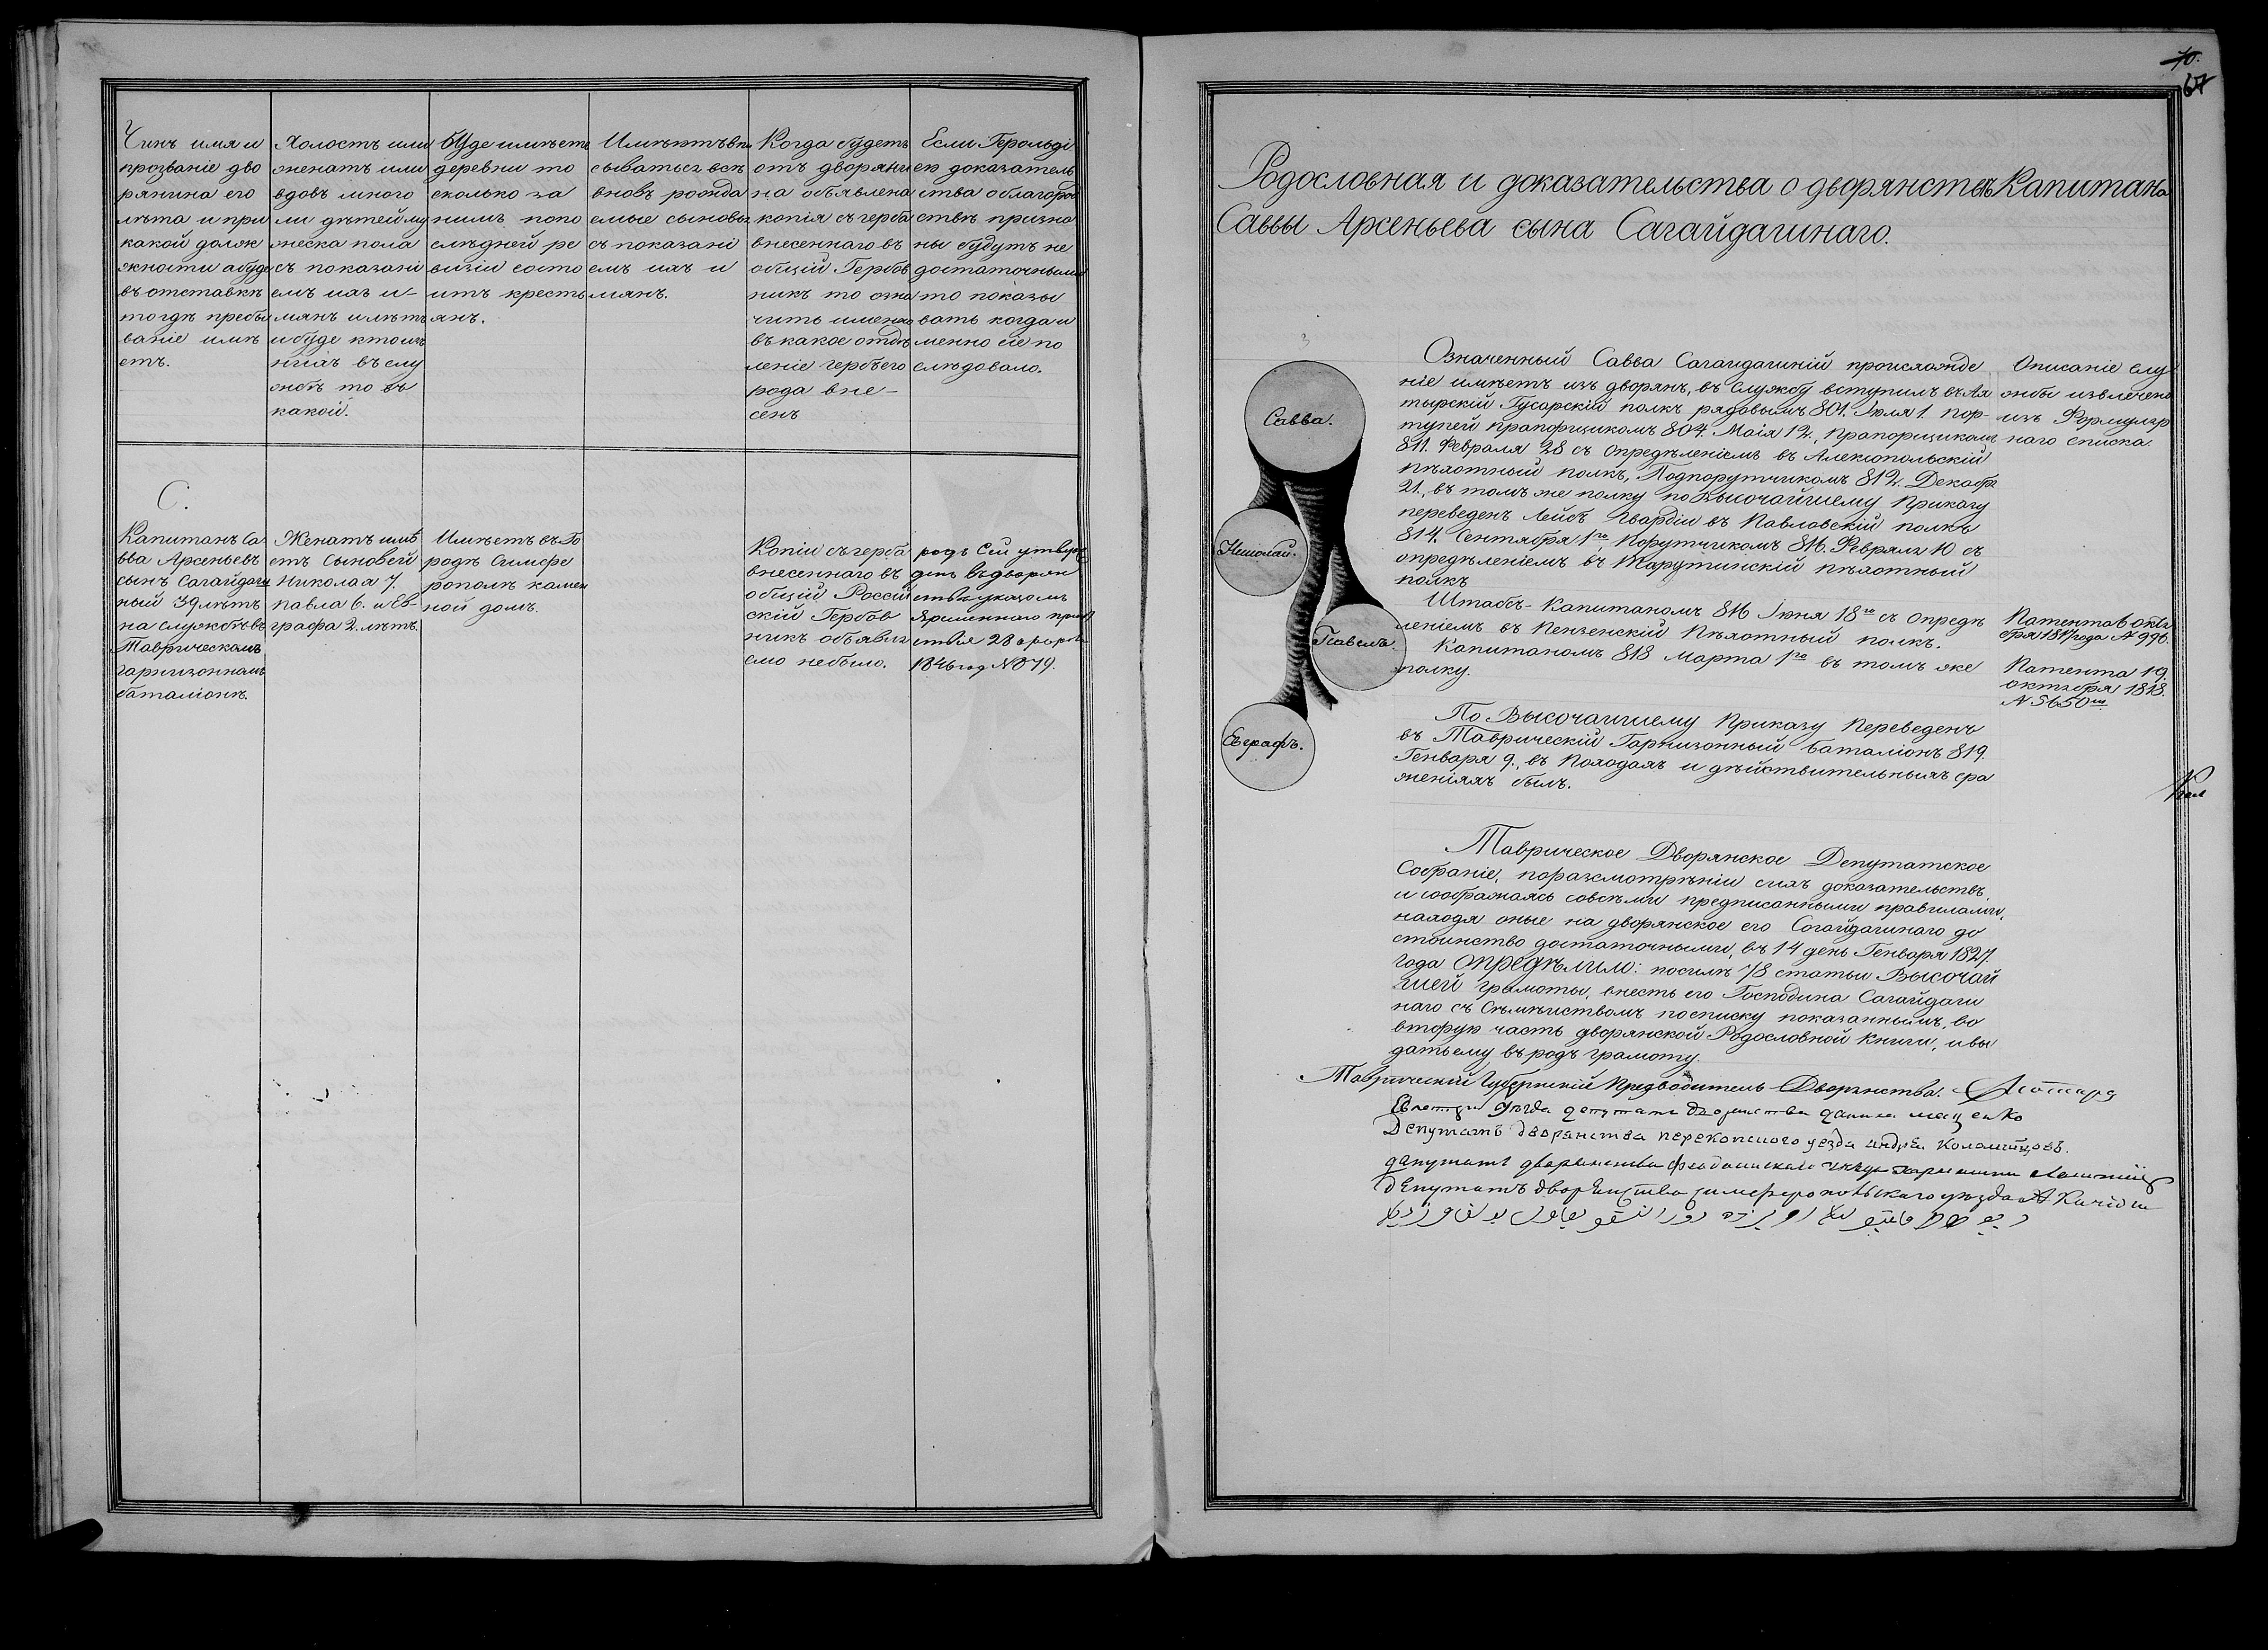 Чинъ имя и
прозваніе дво
рянина его
лѣта и при
какой долж
жности абуде
въ отставкѣ
то гдѣ пребы
ваніе имѣ
етъ.
Холостъ или
женатъ или
вдовъ много
ли дѣтей му
жеска пола
съ показані
емъ ихъ и-
мянъ и лѣтъ
и буде кто изъ
нихъ въ слу
жбѣ то въ
какой.
Буде имѣетъ
деревни то
сколько за
нимъ попо
слѣдней ре
визіи состо
итъ кресть
янъ.
Имѣютъ впи
сываться всѣ
вновь рожда
емые сыновья
съ показані
емъ ихъ и
мянъ.
Когда будетъ
отъ дворяни
на объявлена
копія съ герба
внесеннаго въ
общій Гербов
никъ то озна
чить именно
въ какое отдѣ
леніе гербъ его
рода вне-
сенъ
Если Герольді
ею доказатель
ства о благород
ствѣ призна
ны будутъ не
достаточными
то показы
вать когда и
менно сіе по
слѣдовало.
С.
Капитанъ Са
вва Арсеньевъ
сынъ Сагайдачи
ный 39 лѣтъ
на службѣ въ
Таврическомъ
гарнизонномъ
баталіонѣ.
Женатъ имѣ
етъ Сыновей
Николая 7.
павла 6. и Ев-
графа 2. лѣтъ.
Имѣетъ въ Го
родѣ Симфе
рополѣ камен
ной домъ.
Копіи съ герба
внесеннаго въ
общій Россій
скій Гербов
никъ объявля
емо небыло.
родъ Сей утверж
денъ въ дворян
ствѣ указомъ
Временнаго прис
ствія 28
1846 год № 879.
70.
67
Родословная и доказательства о дворянствѣ Капитана
Саввы Арсеньева сына Сагайдашнаго.
3
Савва.
Николай.
Павелъ.
Евграфъ.
Означенный Савва Сагайдашній происхожде
ніе имѣетъ изъ дворянъ, въ службу вступилъ въ Ах
тырскій Гусарскій полкъ рядовымъ 801. Іюля 1. пор-
тупей прапорщикомъ 804. Маія 12., Прапорщикомъ
811. Февраля 28 съ опредѣленіемъ въ Алексопольскій
пѣхотный полкъ, Подпорутчикомъ 812. Декабря
21., въ томъ же полку по Высочайшему приказу
переведенъ Лейбъ Гвардіи въ Павловскій полкъ
814. Сентября 1го, Порутчикомъ 816. Февраля 10 съ
опредѣленіемъ въ Тарутинскій пѣхотный
полкъ
Штабсъ-Капитаномъ 816 Іюня 18го съ опредѣ
леніемъ въ Пензенскій Пѣхотный полкъ.
Капитаномъ 818 Марта 1го въ томъ же
полку.
По Высочайшему Приказу Переведенъ
въ Таврическій Гарнизонный баталіонъ 819.
Генваря 9., въ Походахъ и дѣйствительныхъ сра
женіяхъ былъ.
Описаніе слу
жбы извлечено
изъ Формуляр
наго списка.
Патента 6 Октя
бря 1817 года № 996.
Патента 19.
октября 1818.
№ 5650й
Таврическое Дворянское Депутатское
Собраніе, поразсмотрѣніи сихъ доказательствъ,
и соображаясь совсѣми предписанными правилами,
находя оные на дворянское его Согайдашнаго до
стоинство достаточными, въ 14 день Генваря 1827.
года опредѣлило: посилѣ 78 статьи Высочай
шей грамоты, внесть его Господина Сагайдаш
наго съ Сѣмѣйствомъ посписку показаннымъ, во
вторую часть дворянской Родословной Книги, и вы
дать ему въ родъ грамоту.
Таврической Губернскій Предводитель Дворянства.
депутатъ
Депутатъ дворянства перекопского уезда андрѣй
депутатъ дворянства
депутатъ дворянства симферопольскаго уѣзда А